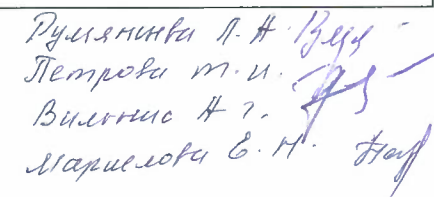 Румянцева Л. А.
Петрова Т. И.
Вильнис А. Г.
Маршелова Е. Н.